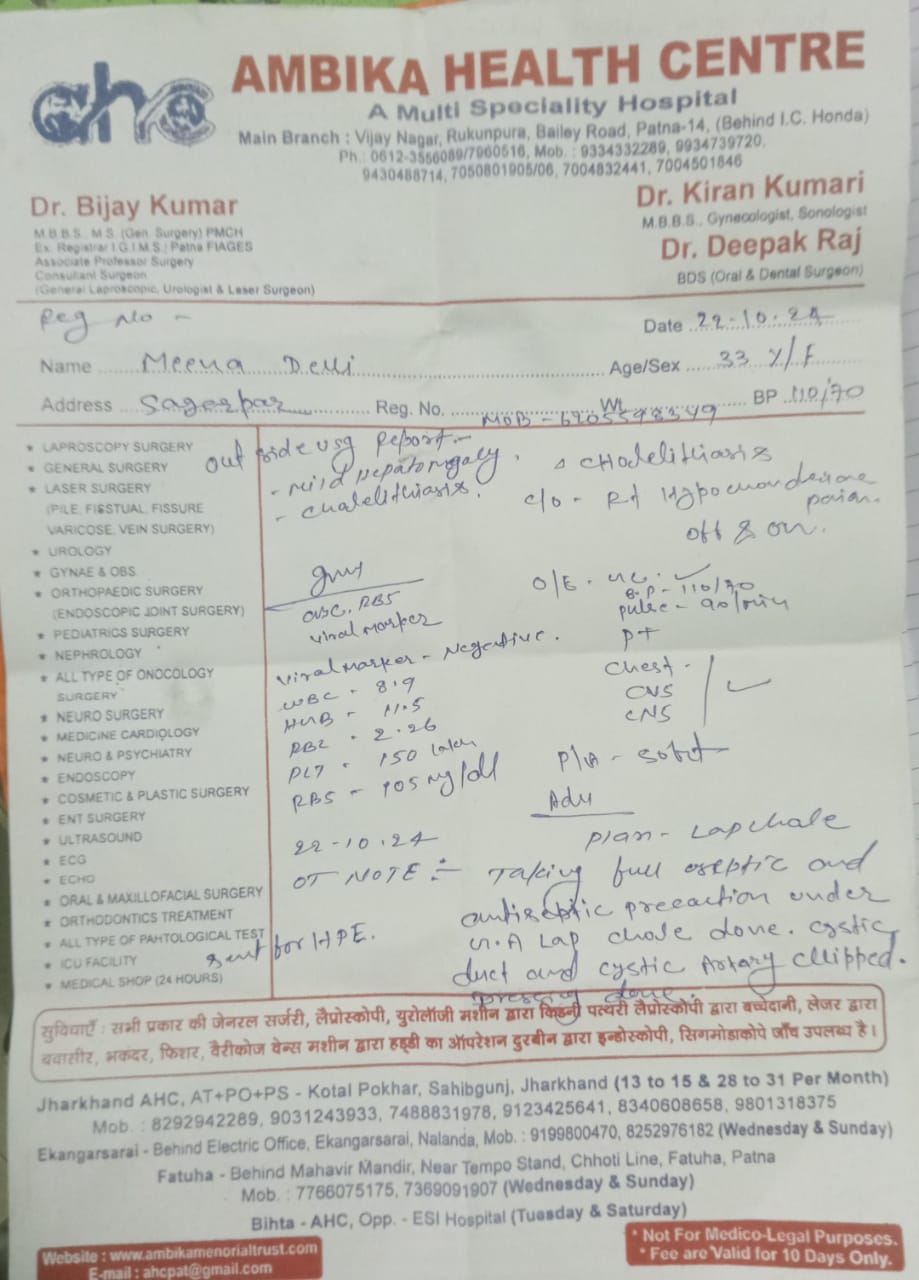 chc
AMBIKA HEALTH CENTRE
A Multi Speciality Hospital
Main Branch : Vijay Nagar, Rukunpura, Bailey Road, Patna-14, (Behind I.C. Honda)
Ph.: 0612-3556089/7960516, Mob. : 9334332289, 9934739720,
9430488714, 7050801905/06, 7004832441, 7004501846
Dr. Bijay Kumar
M.B.B.S., M.S. (Gen. Surgery) PMCH
Ex. Registrar I.G.I.M.S., Patna FIAGES
Associate Professor Surgery
Consultant Surgeon
(General Laproscopic, Urologist & Laser Surgeon)
Dr. Kiran Kumari
M.B.B.S., Gynecologist, Sonologist
Dr. Deepak Raj
BDS (Oral & Dental Surgeon)
Reg No -
Date 22-10-24
Name Meena Devi Age/Sex 33 Y/F
Address Reg. No. Wt. BP 110/70
MOB -
LAPROSCOPY SURGERY
GENERAL SURGERY
LASER SURGERY
(PILE, FISSTUAL, FISSURE
VARICOSE, VEIN SURGERY)
UROLOGY
GYNAE & OBS
ORTHOPAEDIC SURGERY
(ENDOSCOPIC JOINT SURGERY)
PEDIATRICS SURGERY
NEPHROLOGY
ALL TYPE OF ONOCOLOGY
SURGERY
NEURO SURGERY
MEDICINE CARDIOLOGY
NEURO & PSYCHIATRY
ENDOSCOPY
COSMETIC & PLASTIC SURGERY
ENT SURGERY
ULTRASOUND
ECG
ECHO
ORAL & MAXILLOFACIAL SURGERY
ORTHODONTICS TREATMENT
ALL TYPE OF PAHTOLOGICAL TEST
ICU FACILITY
MEDICAL SHOP (24 HOURS)
out side usg Report -
- mild
c/o - Rt
off & on.
O/E -
B.P - 110/70
pulse - 90/min
P+
Chest -
CVS
CNS
P/A - soft
CBC, RBS
viral marker
viral marker - Negative.
WBC - 8.9
- 11.5
- 2.26
PLT - 150
RBS - 105 mg/dl
Adv
plan - Lap chole
22-10-24
OT NOTE :- Taking full aseptic and
antiseptic under
G.A Lap chole done. cystic
duct and cystic Artary cllipped.
Dressing done.
sent for HPE.
सुविधाएँ : सभी प्रकार की जेनरल सर्जरी, लैप्रोस्कोपी, युरोलॉजी मशीन द्वारा किडनी पत्थरी लैप्रोस्कोपी द्वारा बच्चेदानी, लेजर द्वारा
बवासीर, भकंदर, फिशर, वैरीकोज वेन्स मशीन द्वारा हड्डी का ऑपरेशन दुरबीन द्वारा इन्डोस्कोपी, सिगमोडाकोपे जाँच उपलब्ध है।
Jharkhand AHC, AT+PO+PS - Kotal Pokhar, Sahibgunj, Jharkhand (13 to 15 & 28 to 31 Per Month)
Mob. : 8292942289, 9031243933, 7488831978, 9123425641, 8340608658, 9801318375
Ekangarsarai - Behind Electric Office, Ekangarsarai, Nalanda, Mob. : 9199800470, 8252976182 (Wednesday & Sunday)
Fatuha - Behind Mahavir Mandir, Near Tempo Stand, Chhoti Line, Fatuha, Patna
Mob. : 7766075175, 7369091907 (Wednesday & Sunday)
Bihta - AHC, Opp. - ESI Hospital (Tuesday & Saturday)
Website : www.ambikamenorialtrust.com
E-mail : ahcpat@gmail.com
* Not For Medico-Legal Purposes.
* Fee are Valid for 10 Days Only.